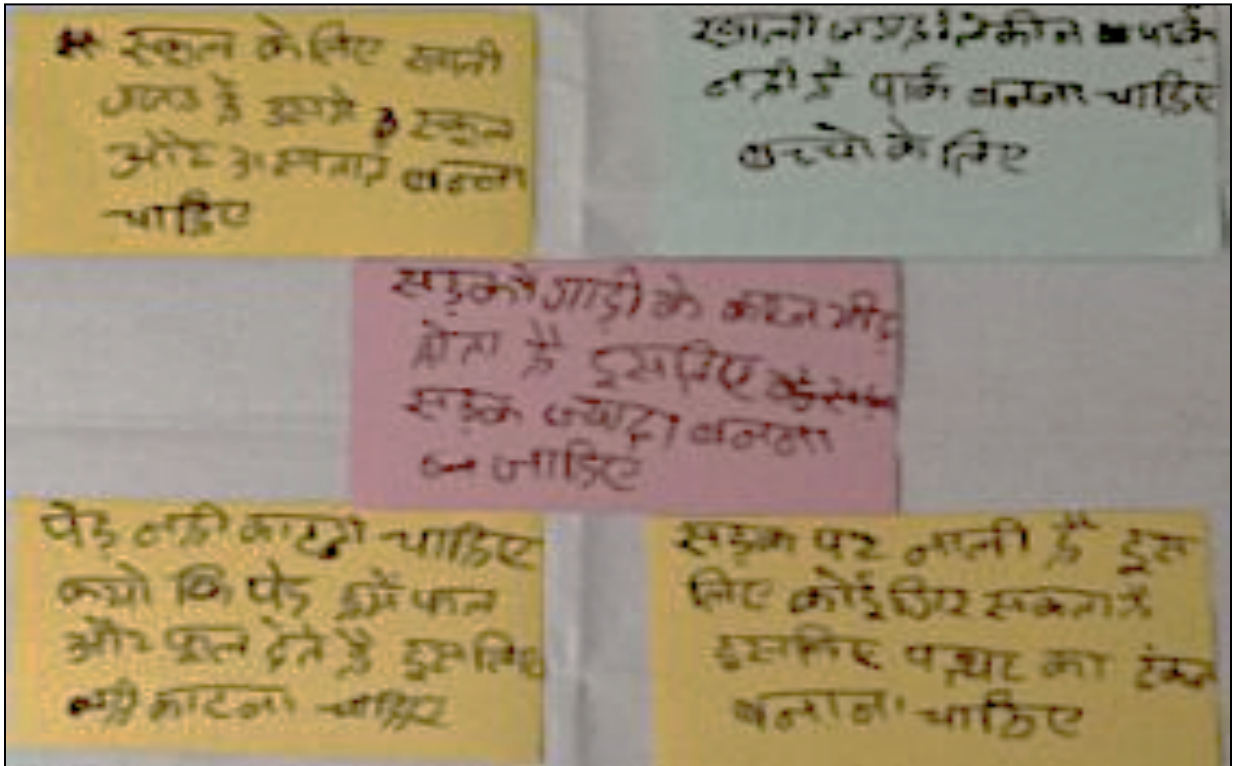 स्कूल के लिए खाली
जगह है उसमे स्कूल
और अस्पताल बनना
चाहिए
खाली जगह है लेकीन पार्क
नही है पार्क बनना चाहिए
बच्चो के लिए
सड़को गाड़ी के कारन भीड़
होता है इसलिए
सड़क ज्यादा बनना
चाहिए
पेड़ नही काटना चाहिए
क्यो कि पेड़ हमें फल
और फूल देते है इसलिए
नही काटना चाहिए
सड़क पर नाली है इस
लिए कोई गिर सकता है
इसलिए पत्थर का ढक्कन
बनाना चाहिए